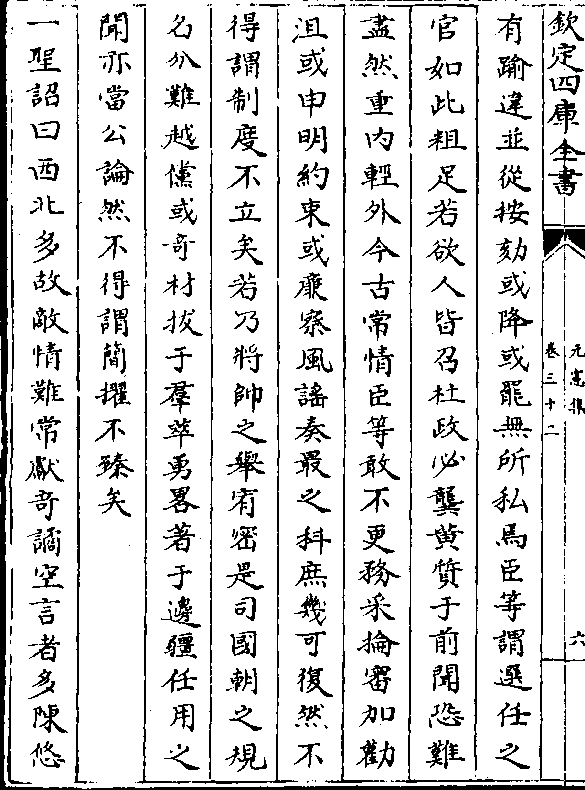 欽定四庫全書
元憲集
卷三十二
六
有踰違並從按劾或降或罷無所私焉臣等謂選任之
官如此粗足若欲人皆召杜政必龔黄質于前聞恐難
盡然重内輕外今古常情臣等敢不更務采掄審加勸
沮或申明約束或廉察風謡奏最之科庶幾可復然不
得謂制度不立矣若乃將帥之舉宥密是司國朝之規
名分難越儻或奇材拔于羣萃勇畧著于邊疆任用之
間亦當公論然不得謂簡擢不臻矣
一聖詔曰西北多故敵情難常獻奇譎空言者多陳悠